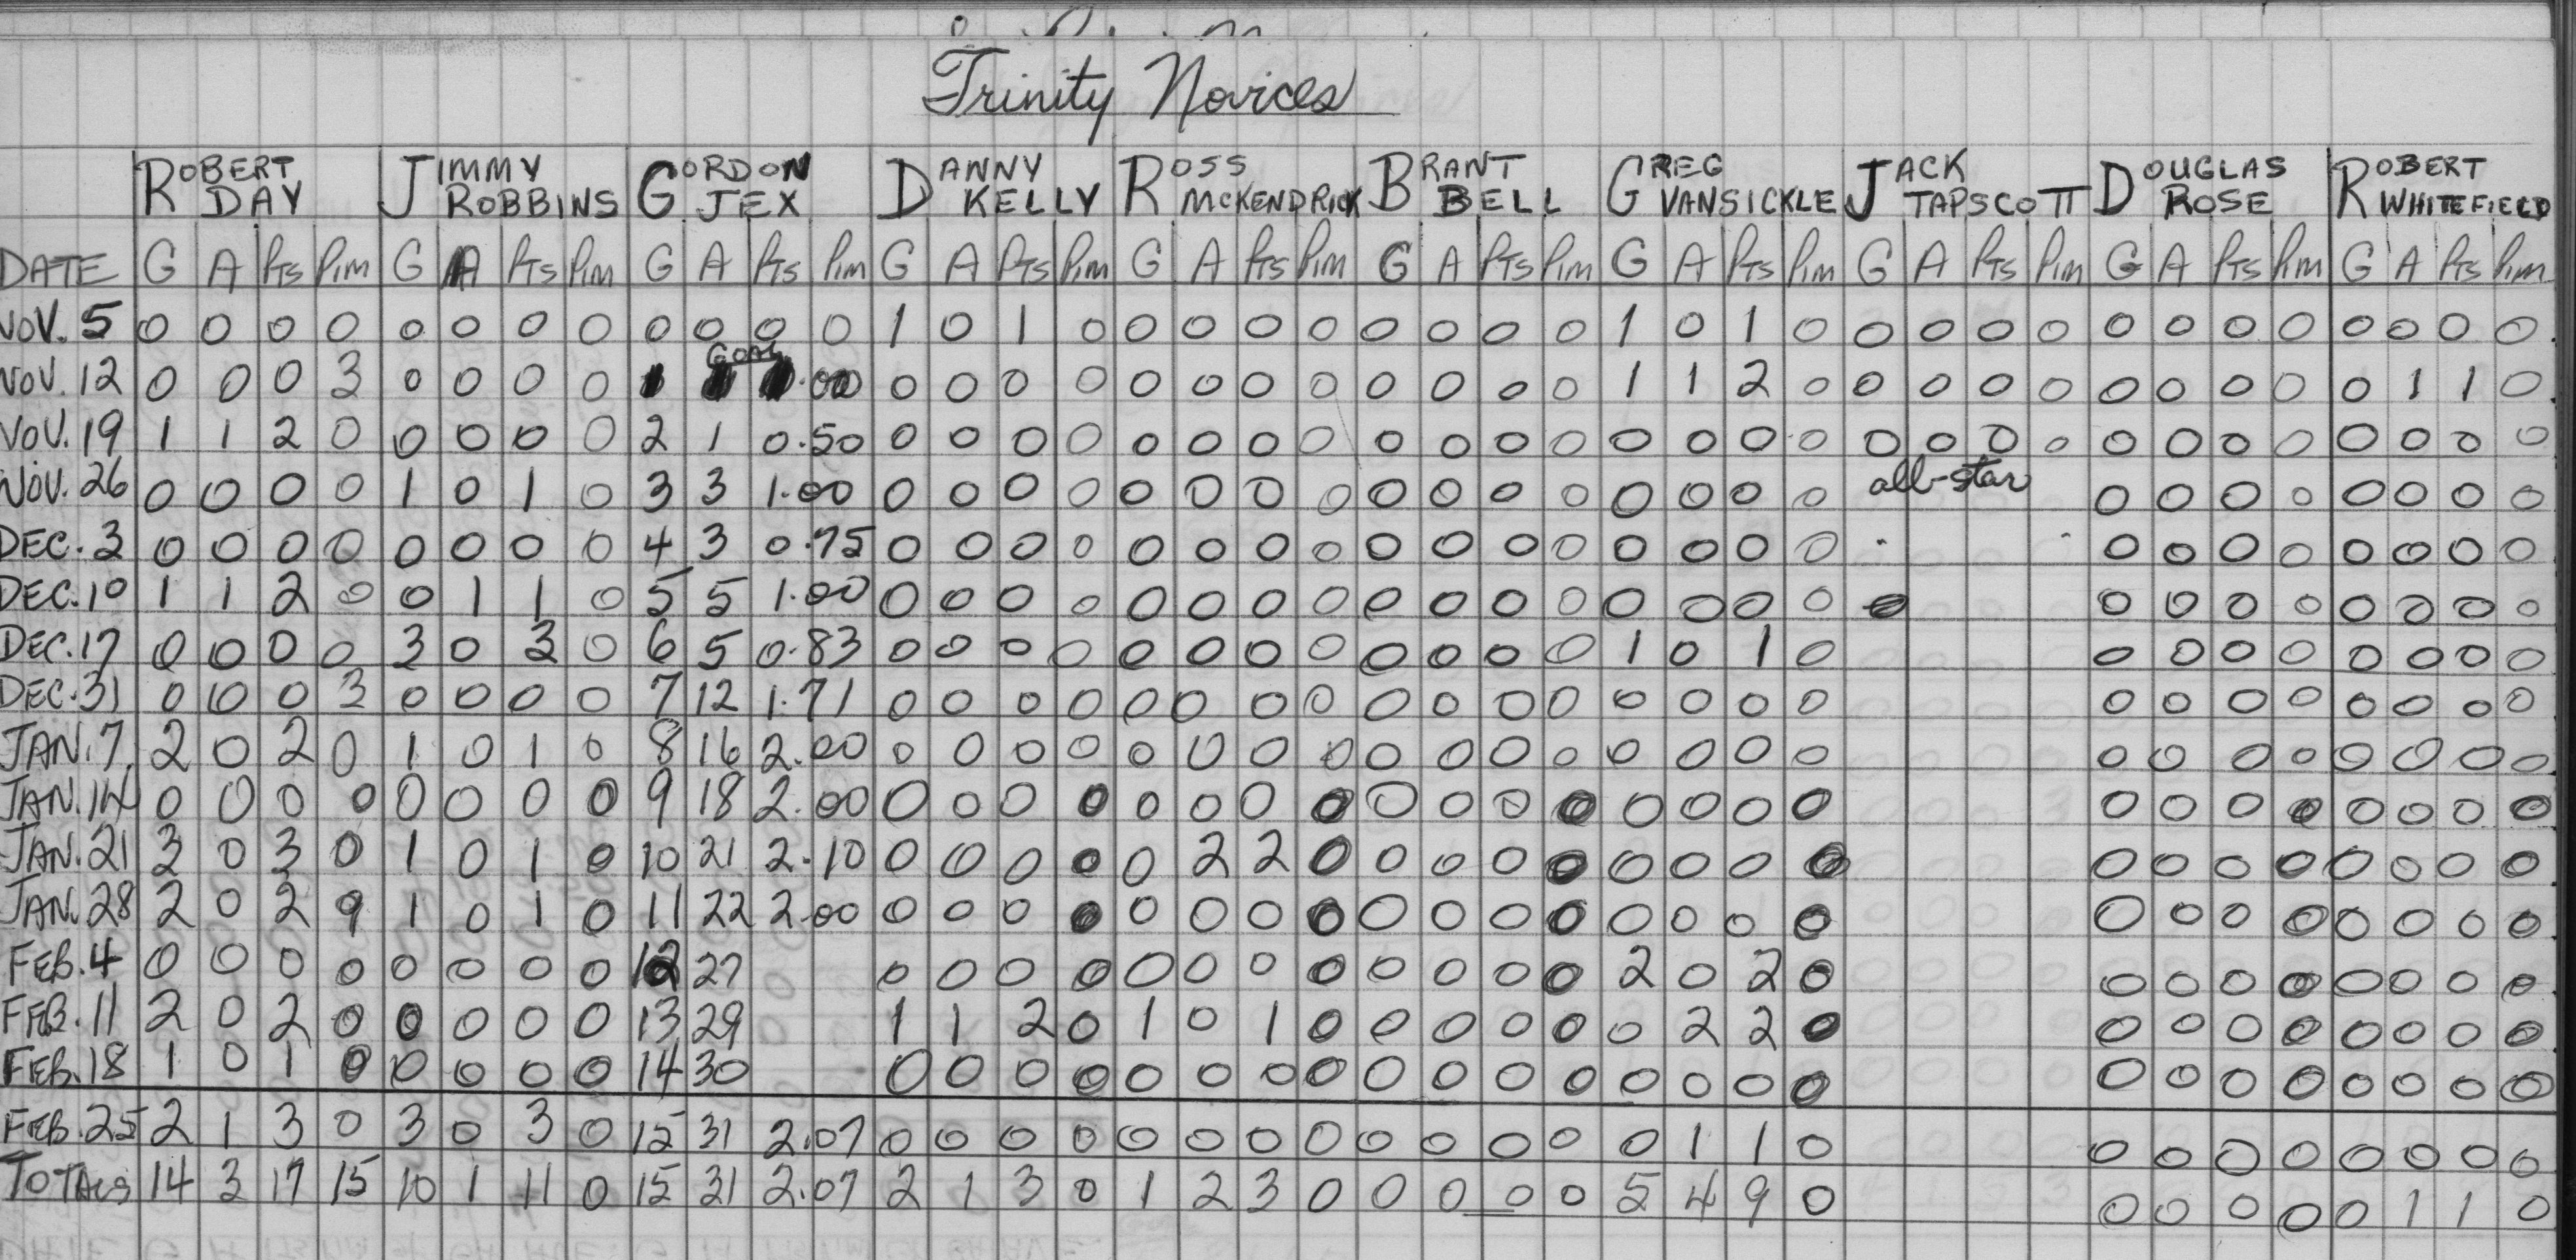 Trinity Novices
ROBERT DAY JIMMY ROBBINS GORDON JEX DANNY KELLY ROSS MCKENDRICK BRANT BELL GREG VANSICKLE JACK TAPSCOTT DOUGLAS ROSE ROBERT WHITEFIELD
DATE G A PTS PIM G A PTS PIM G A PTS PIM G A PTS PIM G A PTS PIM G A PTS PIM G A PTS PIM G A PTS PIM G A PTS PIM G A PTS PIM
NOV. 5 0 0 0 0 0 0 0 0 0 0 0 0 1 0 1 0 0 0 0 0 0 0 0 0 1 0 1 0 0 0 0 0 0 0 0 0 0 0 0 0
NOV. 12 0 0 0 3 0 0 0 0 .00 0 0 0 0 0 0 0 0 0 0 0 0 1 1 2 0 0 0 0 0 0 0 0 0 0 1 1 0
NOV. 19 1 1 2 0 0 0 0 0 2 1 0.50 0 0 0 0 0 0 0 0 0 0 0 0 0 0 0 0 0 0 0 0 0 0 0 0 0 0 0 0
NOV. 26 0 0 0 0 1 0 1 0 3 3 1.00 0 0 0 0 0 0 0 0 0 0 0 0 0 0 0 0 all-star 0 0 0 0 0 0 0 0
DEC. 3 0 0 0 0 0 0 0 0 4 3 0.75 0 0 0 0 0 0 0 0 0 0 0 0 0 0 0 0 0 0 0 0 0 0 0 0
DEC. 10 1 1 2 0 0 1 1 0 5 5 1.00 0 0 0 0 0 0 0 0 0 0 0 0 0 0 0 0 0 0 0 0 0 0 0 0
DEC. 17 0 0 0 0 3 0 3 0 6 5 0.83 0 0 0 0 0 0 0 0 0 0 0 0 1 0 1 0 0 0 0 0 0 0 0 0
DEC. 31 0 0 0 3 0 0 0 0 7 12 1.71 0 0 0 0 0 0 0 0 0 0 0 0 0 0 0 0 0 0 0 0 0 0 0 0
JAN. 7 2 0 2 0 1 0 1 0 8 16 2.00 0 0 0 0 0 0 0 0 0 0 0 0 0 0 0 0 0 0 0 0 0 0 0 0
JAN. 14 0 0 0 0 0 0 0 0 9 18 2.00 0 0 0 0 0 0 0 0 0 0 0 0 0 0 0 0 0 0 0 0 0 0 0 0
JAN. 21 3 0 3 0 1 0 1 0 10 21 2.10 0 0 0 0 0 2 2 0 0 0 0 0 0 0 0 0 0 0 0 0 0 0 0 0
JAN. 28 2 0 2 9 1 0 1 0 11 22 2.00 0 0 0 0 0 0 0 0 0 0 0 0 0 0 0 0 0 0 0 0 0 0 0 0
FEB. 4 0 0 0 0 0 0 0 0 12 27 0 0 0 0 0 0 0 0 0 0 0 0 2 0 2 0 0 0 0 0 0 0 0 0
FEB. 11 2 0 2 0 0 0 0 0 13 29 1 1 2 0 1 0 1 0 0 0 0 0 0 2 2 0 0 0 0 0 0 0 0 0
FEB. 18 1 0 1 0 0 0 0 0 14 30 0 0 0 0 0 0 0 0 0 0 0 0 0 0 0 0 0 0 0 0 0 0 0 0
FEB. 25 2 1 3 0 3 0 3 0 15 31 2.07 0 0 0 0 0 0 0 0 0 0 0 0 0 1 1 0 0 0 0 0 0 0 0 0
TOTALS 14 3 17 15 10 1 11 0 15 31 2.07 2 1 3 0 1 2 3 0 0 0 0 0 5 4 9 0 0 0 0 0 0 1 1 0